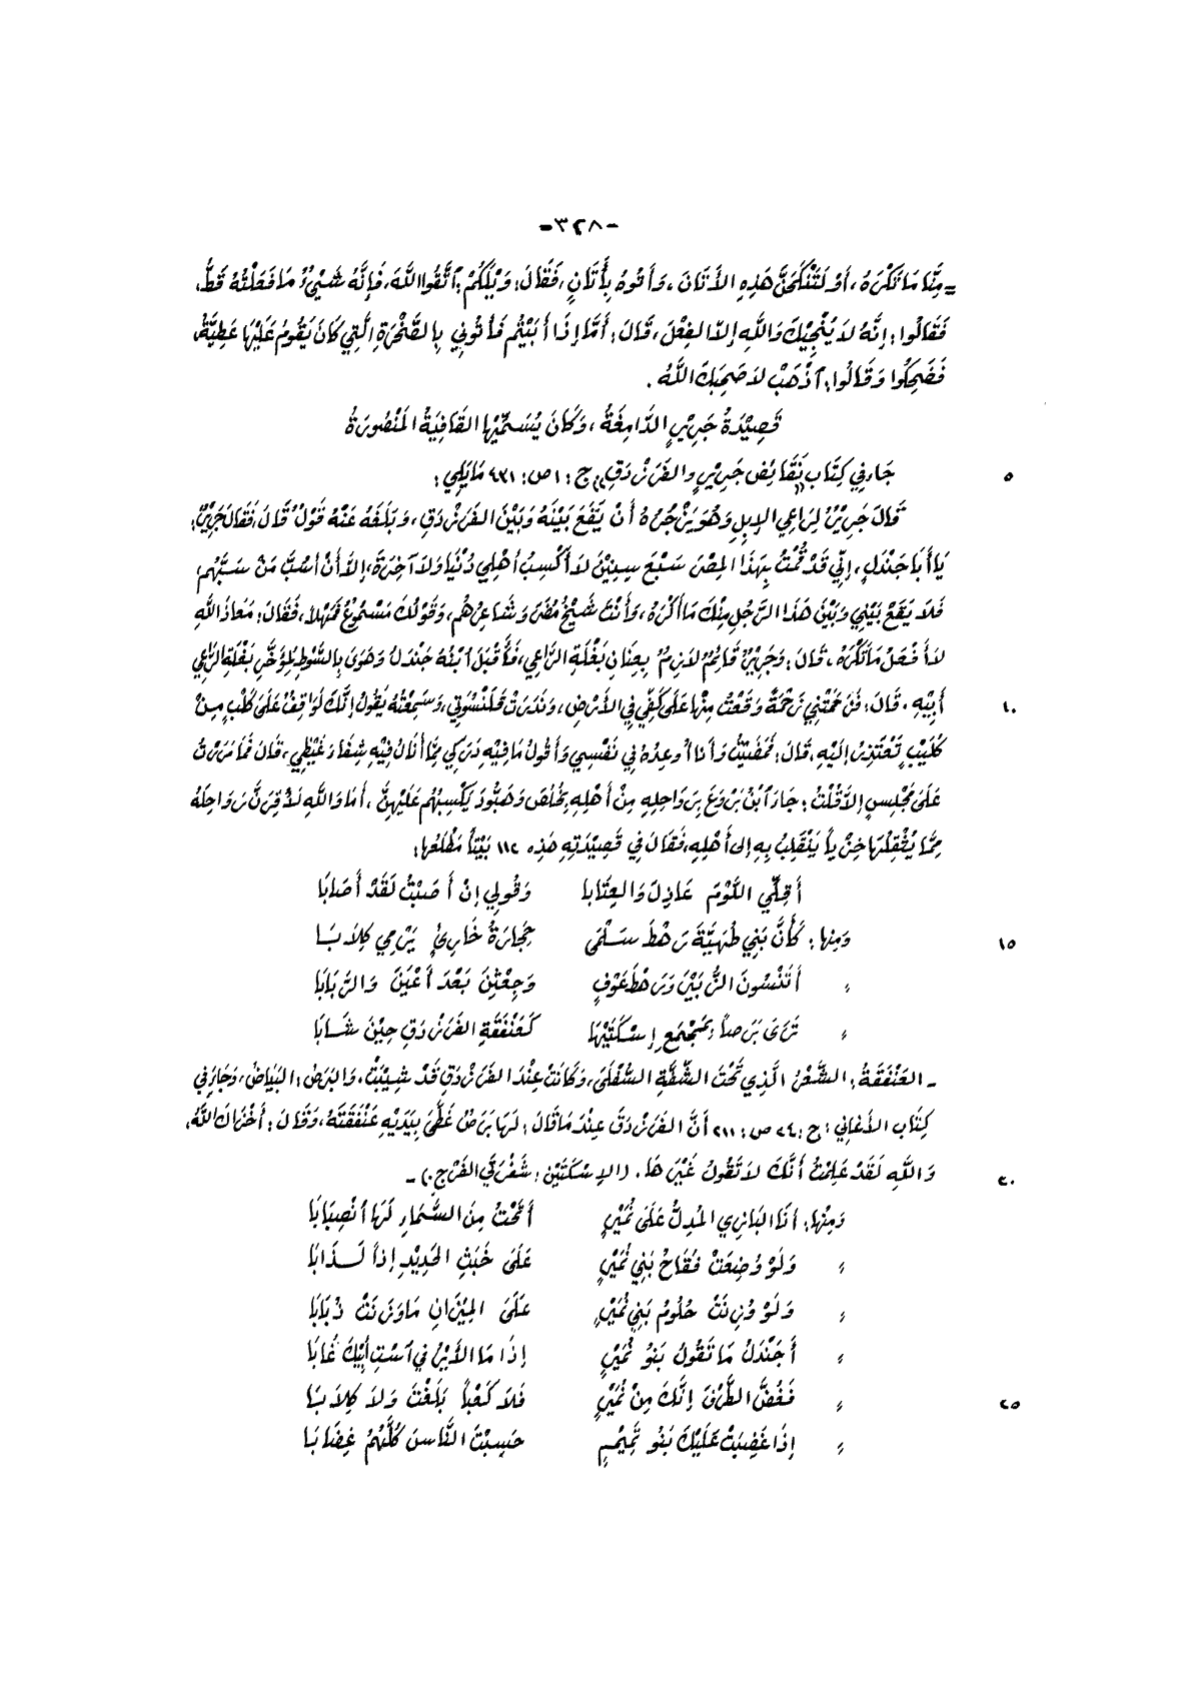 -٣٢٨-
= مِنَّا مَا نَكْرَهُ، أَوْ لَتَنْكَحَنَّ هَذِهِ الأَتَانَ، وَأَتُوهُ بِأَتَانٍ، فَقَالَ: وَيْلَكُمْ، ٱتَّقُوا اللَّهَ، فَإِنَّهُ شَيْءٌ مَا فَعَلْتُهُ قَطُّ،
فَقَالُوا: إِنَّهُ لاَ يُنْجِيْكَ وَاللَّهِ إِلاَّ الفِعْلُ، قَالَ: أَمَّا إِذَا أَبَيْتُم فَأْتُونِي بِالصَّخْرَةِ الَّتِي كَانَ يَقُومُ عَلَيْهَا عَطِيَّةُ،
فَضَحِكُوا وَقَالُوا: ٱذْهَبْ لاَ صَحِبَكَ اللَّهُ.
قَصِيْدَةُ جَرِيْرٍ الدَّامِغَةُ، وَكَانَ يُسَمِّيْهَا القَافِيَةُ المَنْصُورَةُ
٥ جَاءَ فِي كِتَابِ نَقَائِضِ جَرِيْرٍ والفَرَزْدَقِ،، ج: ١ ص: ٤٣١ مَا يَلِي:
قَالَ جَرِيْرٌ لِرَاعِي الإِبِلِ وَهُوَ يَزْجُرُهُ أَنْ يَقَعَ بَيْنَهُ وَبَيْنَ الفَرَزْدَقِ، وَبَلَغَهُ عَنْهُ قَوْلٌ قَالَ، فَقَالَ جَرِيْرٌ:
يَا أَبَا جَنْدَلٍ، إِنِّي قَدْ قُمْتُ بِهَذَا المِصْرِ سَبْعَ سِنِيْنَ لاَ أَكْسِبُ أَهْلِي دُنْيَا وَلاَ آخِرَةَ، إِلاَّ أَنْ أَسُبَّ مَنْ سَبَّهُم
فَلاَ يَقَعْ بَيْنِي وَبَيْنَ هَذَا الرَّجُلِ مِنْكَ مَا أَكْرَهُ، وَأَنْتَ شَيْخُ مُضَرَ وَشَاعِرُهُم، وَقَوْلُكَ مَسْمُوعٌ فَمَهْلاً، فَقَالَ: مَعَاذَ اللَّهِ
لاَ أَفْعَلُ مَا تَكْرَهُ، قَالَ: وَجَرِيْرٌ قَائِمٌ لاَزِمٌ بِعِنَانِ بَغْلَةِ الرَّاعِي، فَأَقْبَلَ ٱبْنُهُ جَنْدَلُ وَهَوَى بِالسَّوْطِ لِمُؤَخَّرِ بَغْلَةِ الرَّاعِي
١٠ أَبِيْهِ. قَالَ: فَزَحَمَتْنِي زَحْمَةً وَقَعْتُ مِنْهَا عَلَى كَفِّي فِي الأَرْضِ، وَنَدَرَتْ قَلَنْسُوَتِي، وَسَمِعْتُهُ يَقُولُ إِنَّكَ لَوَاقِفٌ عَلَى كَلْبٍ مِنْ
كُلَيْبٍ تَعْتَذِرُ إِلَيْهِ، قَالَ: فَمَضَيْتُ وَأَنَا أُوعِدُهُ فِي نَفْسِي وَأَقُولُ مَا فِيْهِ دَرَكِي مِمَّا أَنَالُ فِيْهِ شِفَاءَ غَيْظِي، قَالَ فَمَا مَرَرْتُ
عَلَى مَجْلِسٍ إِلاَّ قُلْتُ: جَاءَ ٱبْنُ بَرْوَعَ بِرَوَاحِلِهِ مِنْ أَهْلِهِ بِخُلُصَ وَهَبُّودَ يَكْسِبُهُم عَلَيْهِنَّ، أَمَا وَاللَّهِ لَأُوقِرَنَّ رَوَاحِلَهُ
مِمَّا يُثْقِلُهَا خِزْياً يَنْقَلِبُ بِهِ إِلى أَهْلِهِ، فَقَالَ فِي قَصِيْدَتِهِ هَذِهِ ١١٢ بَيْتاً مَطْلَعُهَا:
أَقِلِّي اللَّوْمَ عَاذِلَ وَالعِتَابا وَقُولِي إِنْ أَصَبْتُ لَقَدْ أَصَابَا
١٥ وَمِنْها: كَأَنَّ بَنِي طُهَيَّةَ رَهْطَ سَلْمَى حِجَارَةُ خَارِئٍ يَرْمِي كِلاَبَا
، أَتَنْسُونَ الزُّبَيْرَ وَرَهْطَ عَوْفٍ وَجِعْثِنَ بَعْدَ أَعْيَنَ وَالرَّبَابَا
، تَرَى بَرَصاً بِمَجْمَعِ إِسْكَتَيْهَا كَعَنْفَقَةِ الفَرَزْدَقِ حِيْنَ شَابَا
- العَنْفَقَةُ: الشَّعْرُ الَّذِي تَحْتَ الشَّفَةِ السُّفْلَى، وَكَانَتْ عِنْدَ الفَرَزْدَقِ قَدْ شِيْبَتْ، وَالبَرَصُ: البَيَاضُ، وَجَاءَ فِي
كِتَابِ الأَغَانِي: ج: ٢٤ ص: ٢١١ أَنَّ الفَرَزْدَقَ عِنْدَ مَا قَالَ: لَهَا بَرَصٌ غَطَّى بِيَدَيْهِ عَنْفَقَتَهُ، وَقَالَ: أَخْزَاكَ اللَّهُ،
٢٠ وَاللَّهِ لَقَدْ عَلِمْتُ أَنَّكَ لاَ تَقُولُ غَيْرَهَا. (الإِسْكَتَيْنِ: شَفْرَتَي الفَرْجِ.) -
وَمِنْهَا: أَنَا البَازِي المُدِلُّ عَلَى نُمَيْرٍ أُتِحْتُ مِنَ السَّمَاءِ لَهَا ٱنْصِبَابَا
، وَلَوْ وُضِعَتْ فُقَاحُ بَنِي نُمَيْرٍ عَلَى خَبَثِ الحَدِيْدِ إِذاً لَذَابَا
، وَلَوْ وُزِنَتْ حُلُومُ بَنِي نُمَيْرٍ عَلَى المِيْزَانِ مَا وَزَنَتْ ذُبَابَا
، أَجَنْدَلُ مَا تَقُولُ بَنُو نُمَيْرٍ إِذَا مَا الأَيْرُ فِي ٱسْتِ أَبِيْكَ غَابَا
٢٥ ، فَغُضَّ الطَّرْفَ إِنَّكَ مِنْ نُمَيْرٍ فَلاَ كَعْباً بَلَغْتَ وَلاَ كِلاَبَا
، إِذَا غَضِبَتْ عَلَيْكَ بَنُو تَمِيْمٍ حَسِبْتَ النَّاسَ كُلَّهُمُ غِضَابَا